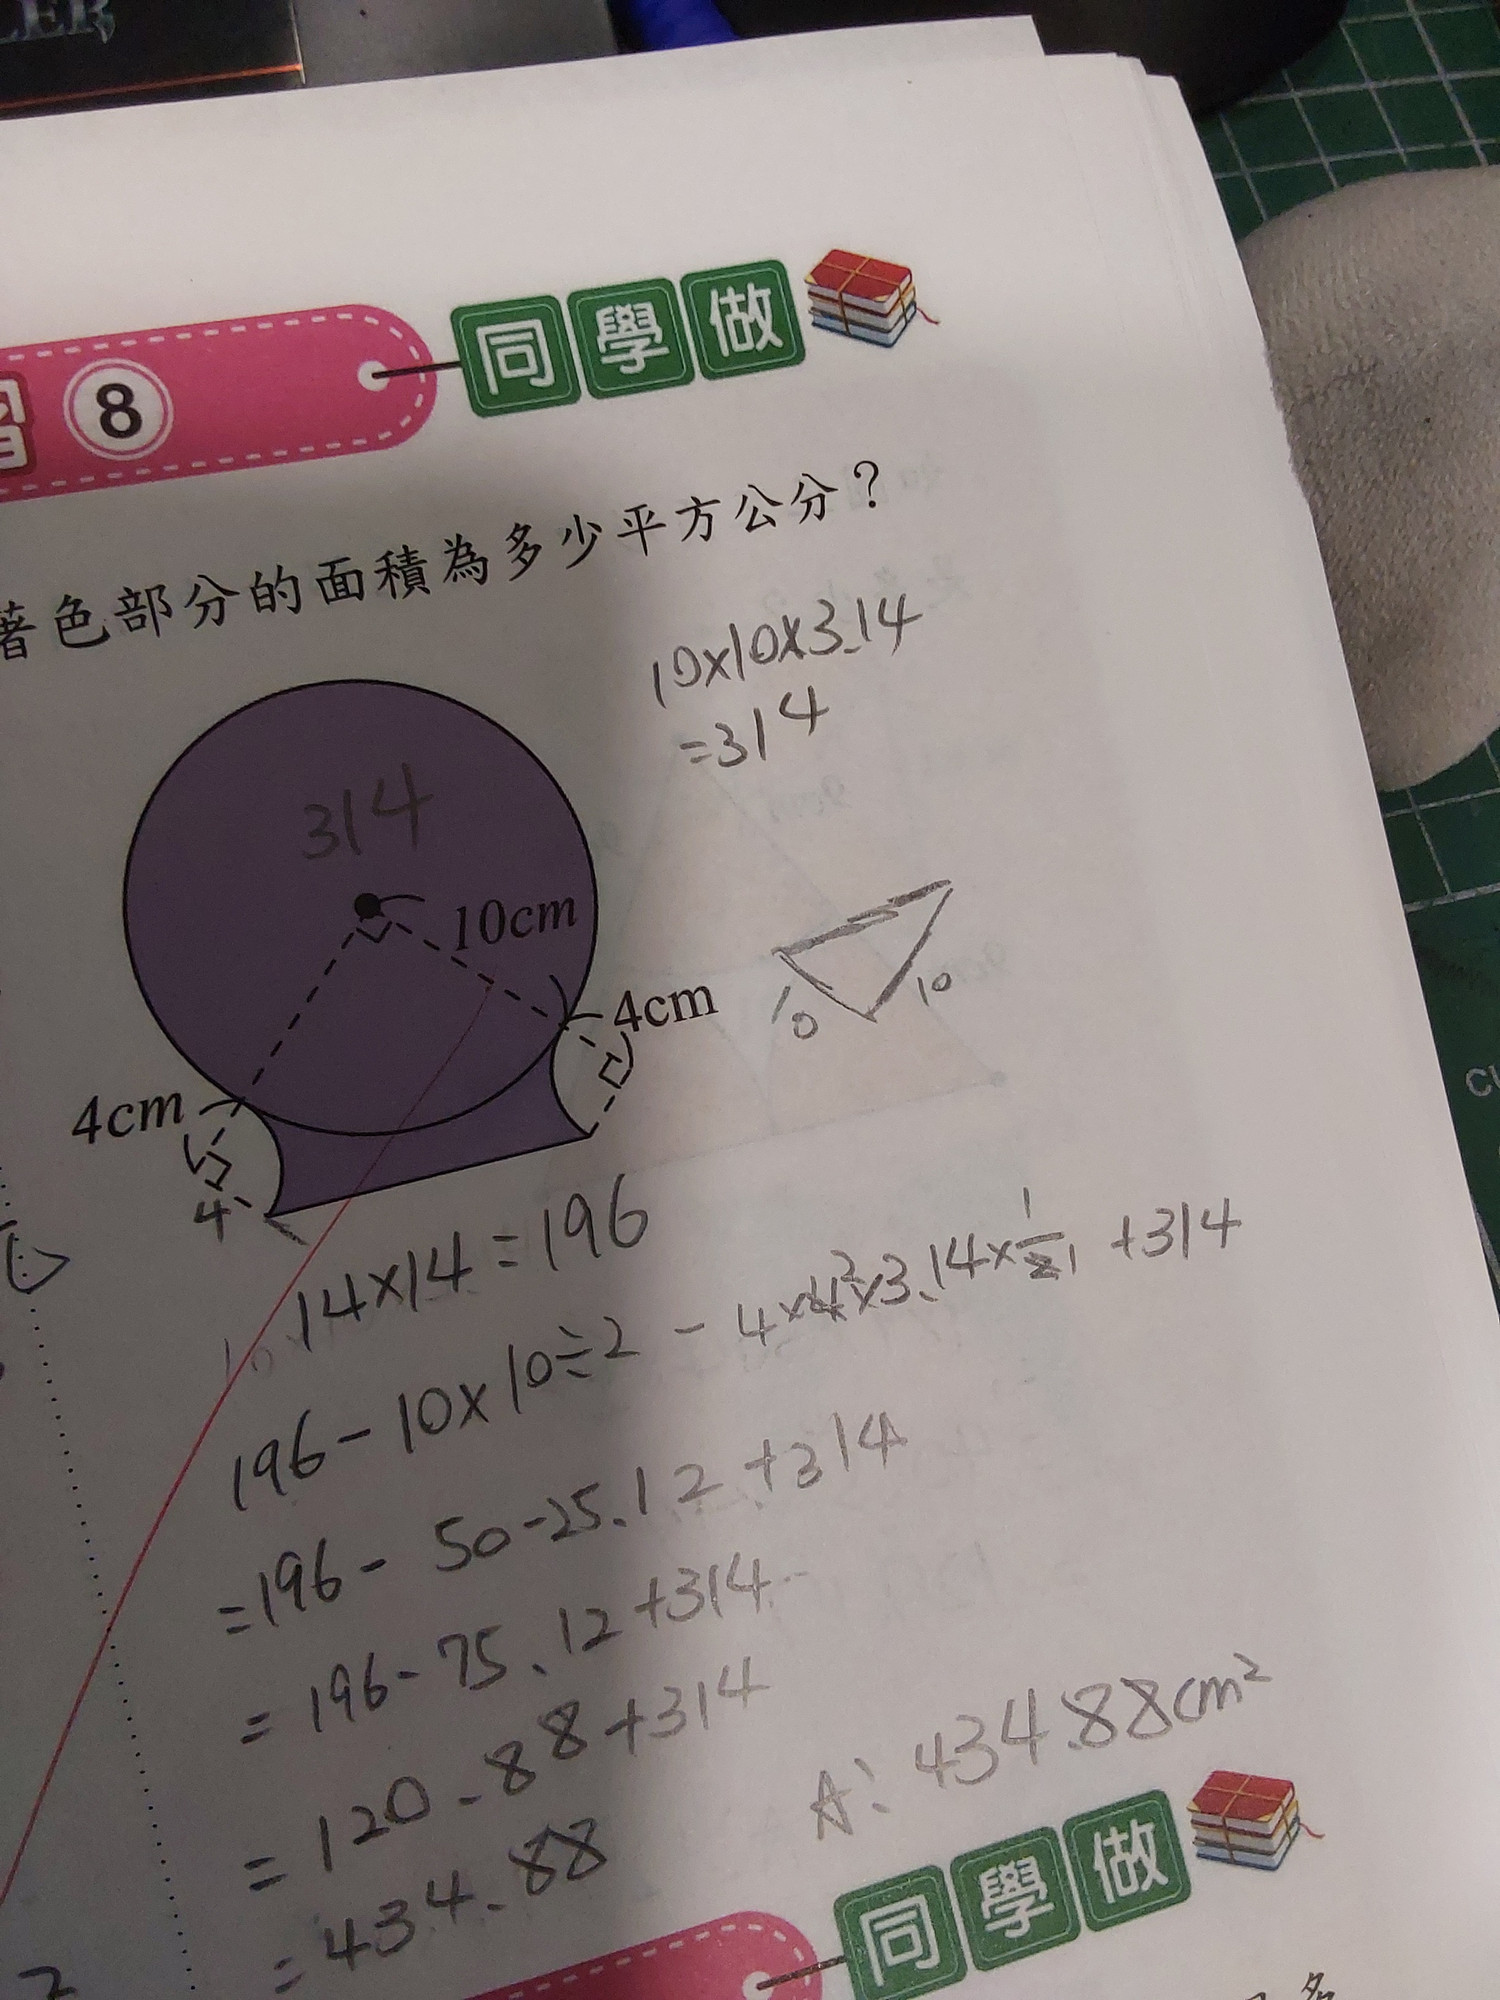 LER
習 8 同學做
著色部分的面積為多少平方公分?
10×10×3.14
=314
314
10cm
4cm
10
10
4cm
4
14×14=196
196-10×10÷2 - 4×4²×3.14×1/2 +314
=196- 50-25.12 +314
= 196-75.12+314
= 120.88+314
= 434.88
A: 434.88cm²
同學做